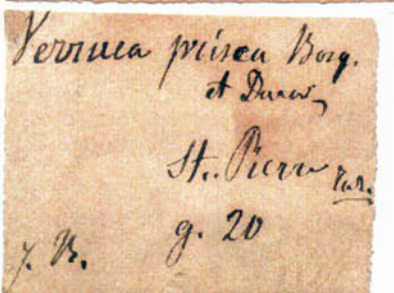 Verruca prisca Bosq.
et Darwin
St. Pierre
g. 20
J. B.